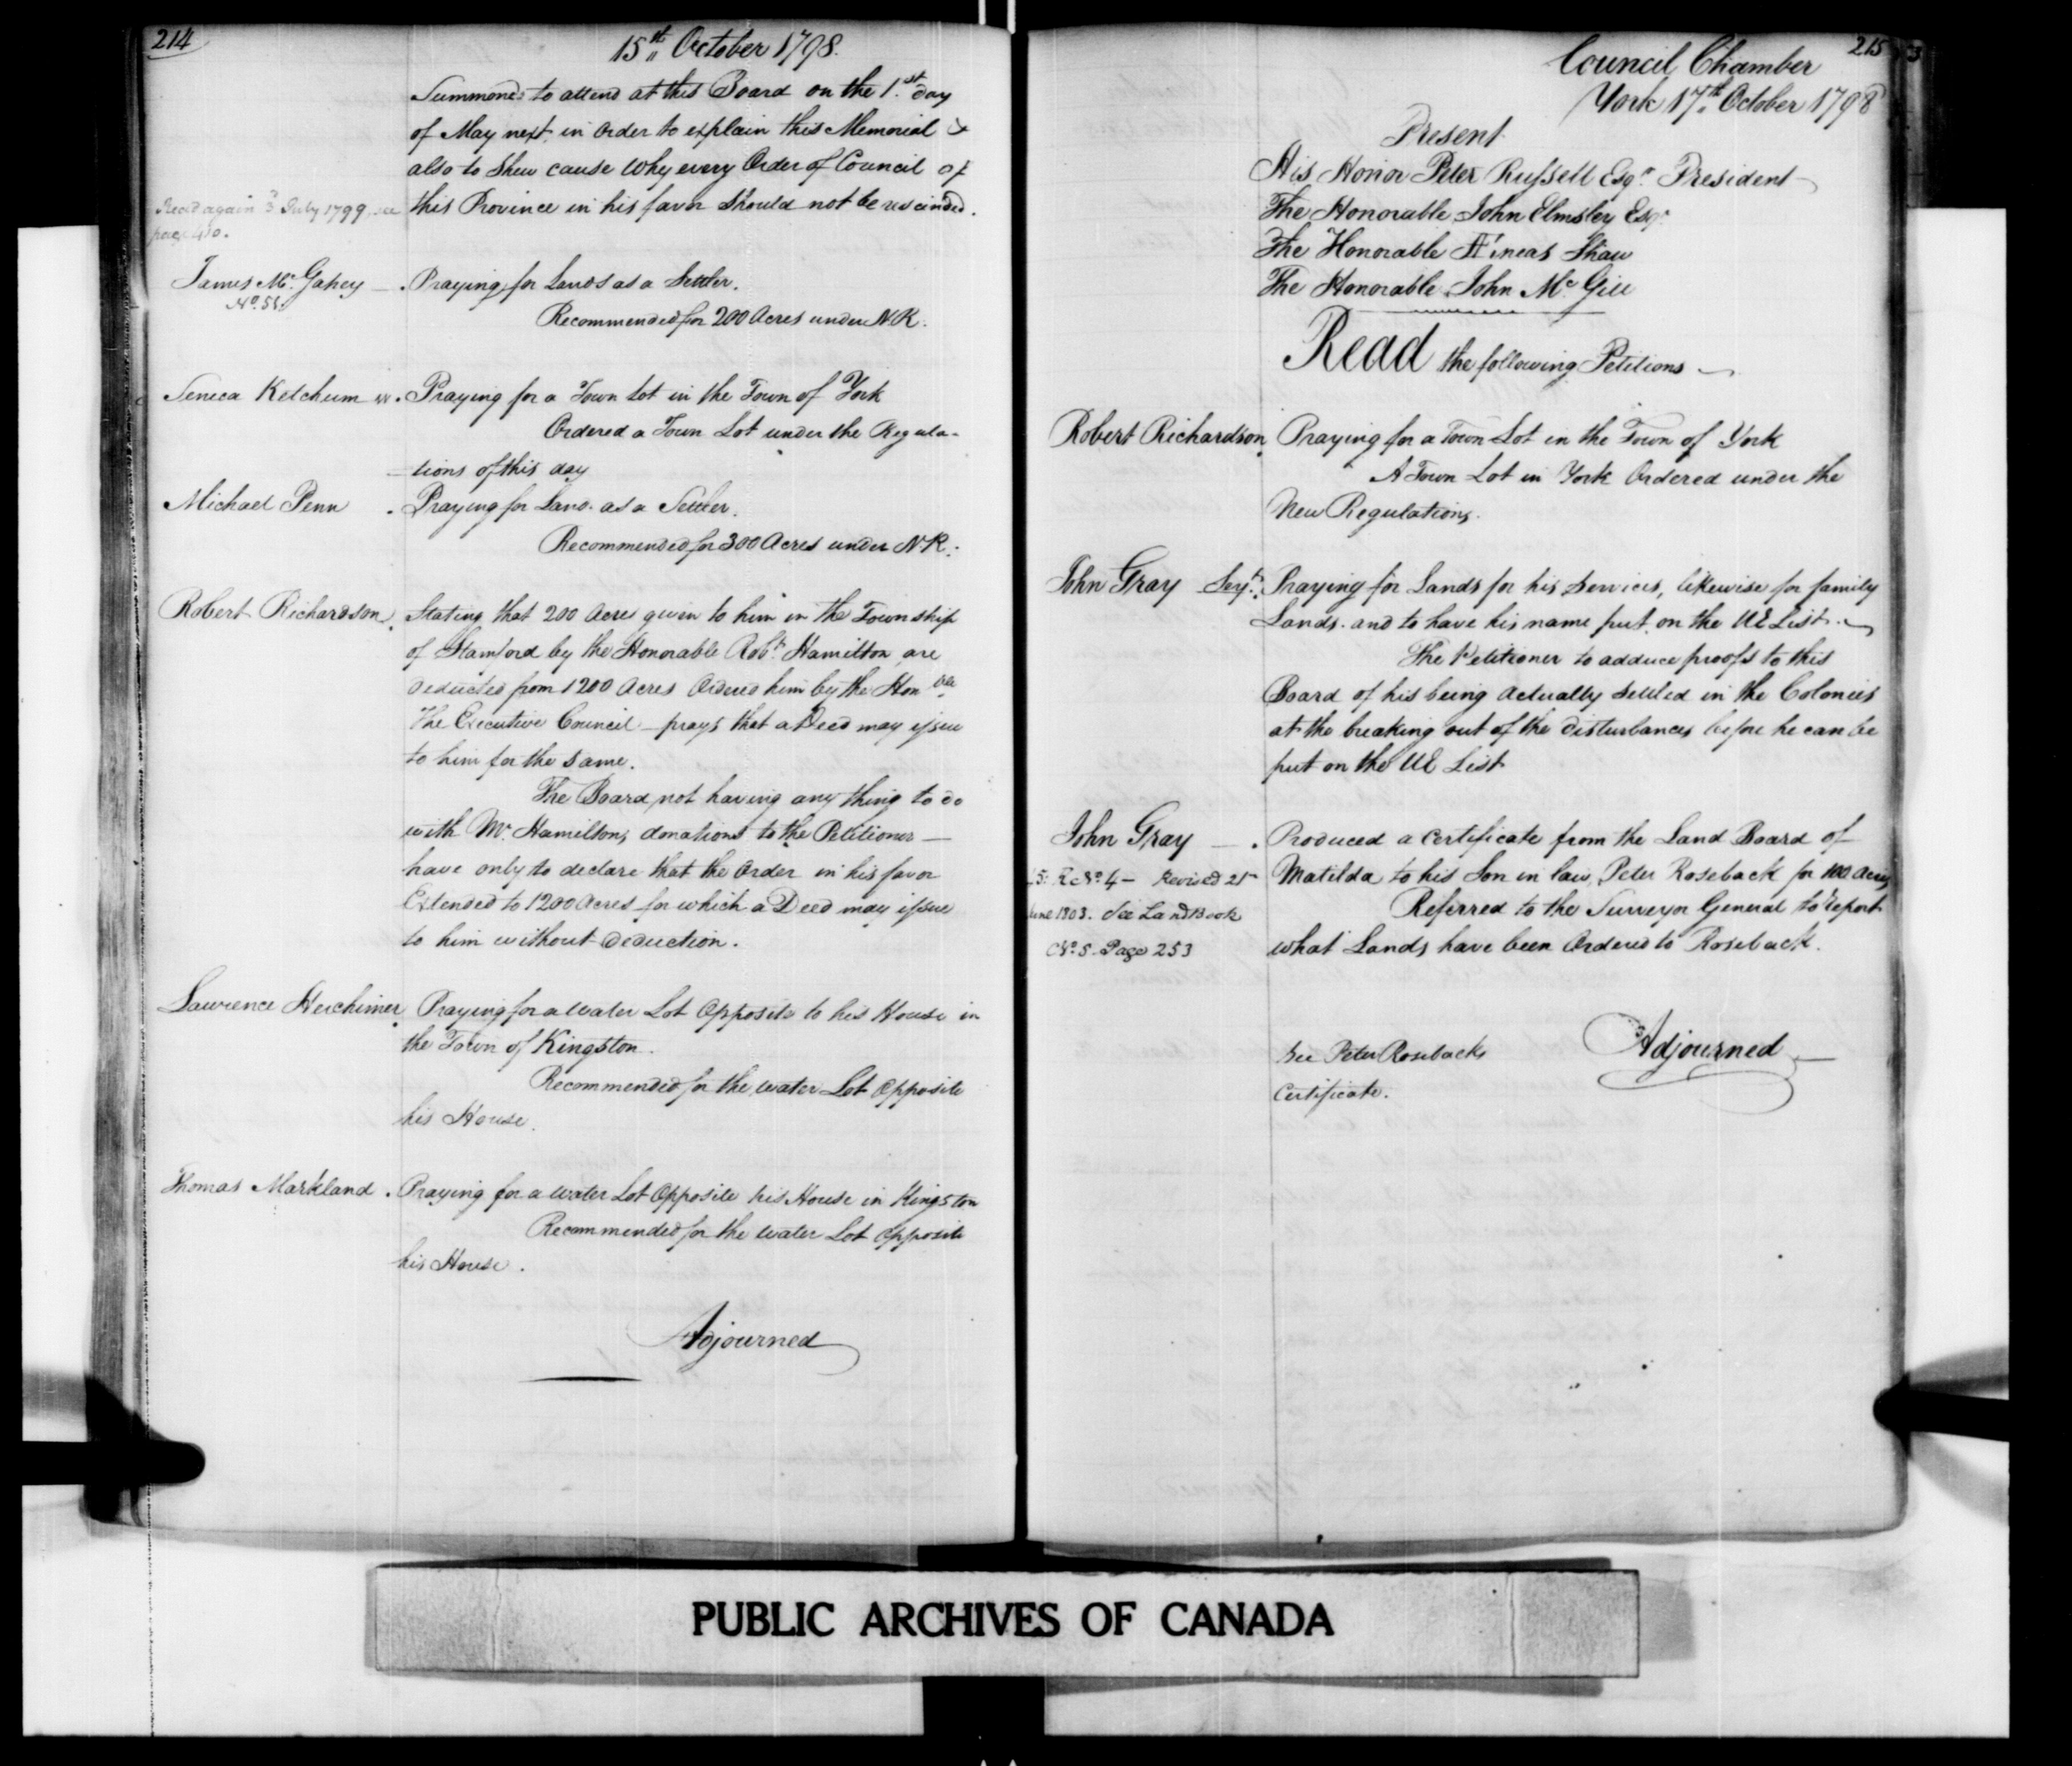 214
15th October 1798.
Summoned to attend at this Board on the 1st day
of May next in Order to explain this Memorial &
also to Shew cause Why every Order of Council of
this Province in his favor Should not be rescinded.
Read again 3d July 1799 see
page
James McGahey — . Praying for Lands as a Settler.
No.
Recommended for 200 Acres under N.R.
Seneca Ketchum . Praying for a Town Lot in the Town of York
Ordered a Town Lot under the Regula-
tions of this day
Michael Penn . Praying for Land as a Settler.
Recommended for 300 Acres under N.R.
Robert Richardson . Stating that 200 Acres given to him in the Township
of Stamford by the Honorable Robt. Hamilton are
deducted from 1200 Acres Ordered him by the Honble
The Executive Council — prays that a Deed may issue
to him for the same.
The Board not having any thing to do
with Mr. Hamiltons donations to the Petitioner —
have only to declare that the Order in his favor
Extended to 1200 Acres for which a Deed may issue
to him without deduction.
Lawrence Herchimer . Praying for a Water Lot Opposite to his House in
the Town of Kingston.
Recommended for the Water Lot Opposite
his House.
Thomas Markland . Praying for a Water Lot Opposite his House in Kingston
Recommended for the Water Lot Opposite
his House.
Adjourned
215
Council Chamber
York 17th October 1798
Present
His Honor Peter Russell Esqr. President
The Honorable John Elmsley Esqr.
The Honorable Æneas Shaw
The Honorable John McGill
Read the following Petitions
Robert Richardson . Praying for a Town Lot in the Town of York
A Town Lot in York Ordered under the
New Regulations.
John Gray Serjt. . Praying for Lands for his Services, likewise for family
Lands. and to have his name put on the UE List.
The Petitioner to adduce proofs to this
Board of his being actually Settled in the Colonies
at the breaking out of the disturbances before he can be
put on the UE List
John Gray — . Produced a Certificate from the Land Board of
R No. 4 — Revised 25 Matilda to his Son in law Peter Roseback for 100 Acres
June 1803. See Land Book Referred to the Surveyor General to report
No. 5. Page 253 what Lands have been Ordered to Roseback.
See Peter Rosebacks Adjourned
Certificate.
PUBLIC ARCHIVES OF CANADA